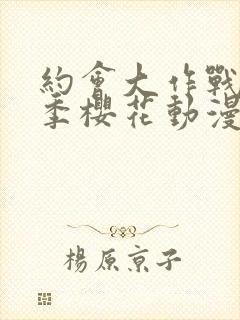 約會大作戰
季櫻花動漫
楊原京子